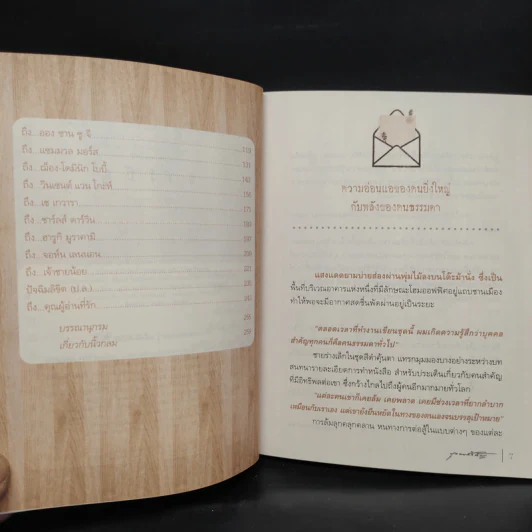 ถึง...ออง ซาน ซู จี
ถึง...แซมมวล มอร์ส 119
ถึง...เมือง-โดมินิก โบบี้ 131
ถึง...วินเซนต์ แวน โกะห์
ถึง...เช เกวารา
ถึง...ชาร์ลส์ ดาร์วิน 175
ถึง...ฮารูกิ มูราคามิ
ถึง...จอห์น เลนนอน
ถึง...เจ้าชายน้อย
ปัจฉิมลิขิต (ป.ล.)
ถึง...คุณผู้อ่านที่รัก
บรรณานุกรม
เกี่ยวกับนิ้วกลม
ความอ่อนแอของคนยิ่งใหญ่
กับพลังของคนธรรมดา
แสงแดดยามบ่ายส่องผ่านพุ่มไม้ลงบนโต๊ะม้านั่ง ซึ่งเป็น
พื้นที่บริเวณอาคารแห่งหนึ่งที่มีลักษณะโฮมออฟฟิศอยู่แถบชานเมือง
ทำให้พอจะมีอากาศสดชื่นพัดผ่านอยู่เป็นระยะ
"ตลอดเวลาที่ทำงานเขียนชุดนี้ ผมเกิดความรู้สึกว่าบุคคล
สำคัญทุกคนก็คือคนธรรมดาทั่วไป"
ชายร่างเล็กในชุดสีดำคุ้นตา แทรกมุมมองบางอย่างระหว่างบท
สนทนารายละเอียดการทำหนังสือ สำหรับประเด็นเกี่ยวกับคนสำคัญ
ที่มีอิทธิพลต่อเขา ซึ่งกว้างไกลไปถึงผู้คนอีกมากมายทั่วโลก
"แต่ละคนเขาก็เคยล้ม เคยพลาด เคยมีช่วงเวลาที่ยากลำบาก
เหมือนกับเราเอง แต่เขายังยืนหยัดในทางของตนเองจนบรรลุเป้าหมาย"
การล้มลุกคลุกคลาน หนทางการต่อสู้ในแบบต่างๆ ของแต่ละ
7